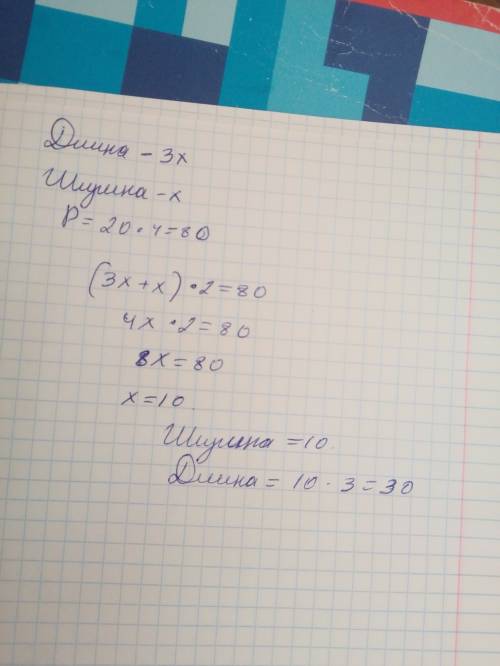 Длина - 3x
Ширина - x
P = 20 · 4 = 80
(3x + x) · 2 = 80
4x · 2 = 80
8x = 80
x = 10.
Ширина = 10.
Длина = 10 · 3 = 30